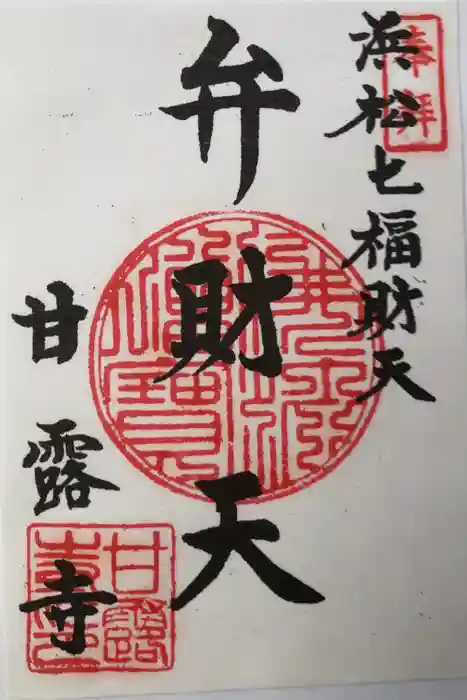 奉拜
浜松七福財天
弁財天
甘露寺
甘露
寺